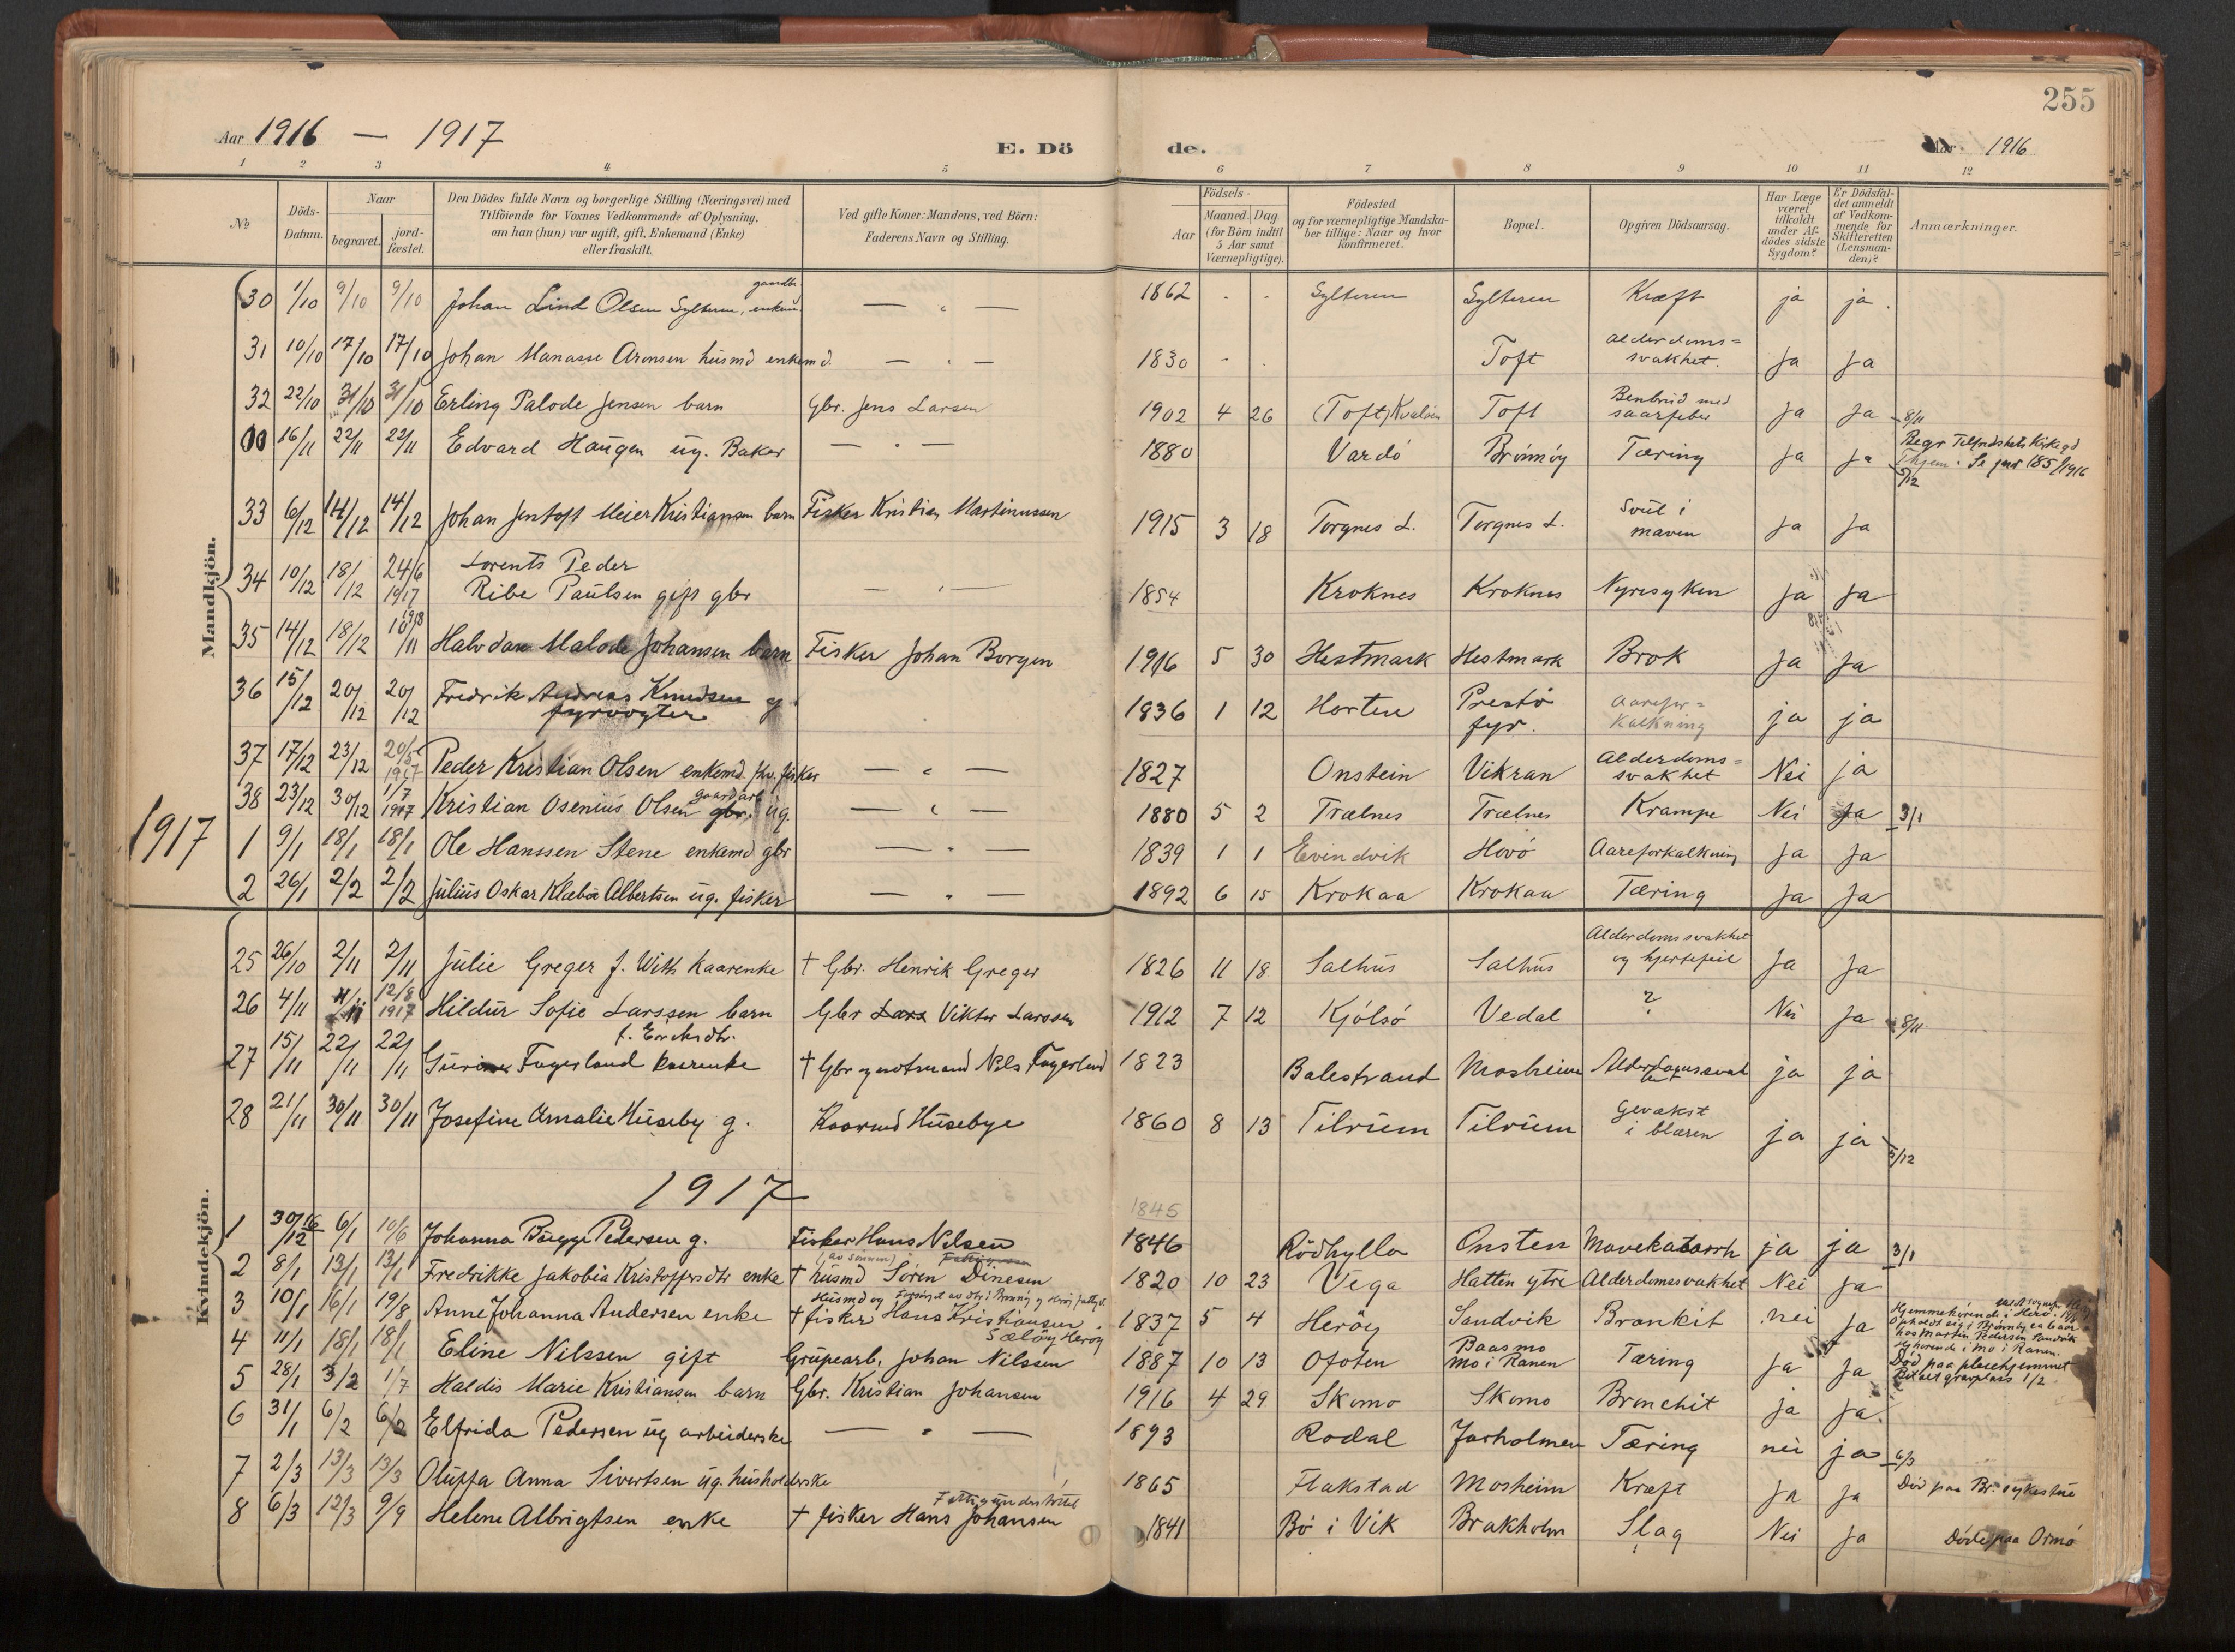 255
Aar 1916 — 1917
E. Dö
de.
Aar 1916
1 2 3 4 5 6 7 8 9 10 11 12
No
Döds-Datum.
Naar
begravet.
jord-fæstet.
Den Dödes fulde Navn og borgerlige Stilling (Næringsvei) med
Tilföiende for Voxnes Vedkommende af Oplysning,
om han (hun) var ugift, gift, Enkemand (Enke)
eller fraskilt.
Ved gifte Koner: Mandens, ved Börn:
Faderens Navn og Stilling.
Födsels-
Aar
Maaned. Dag.
(for Börn indtil
5 Aar samt
Værnepligtige).
Födested
og for værnepligtige Mandska-
ber tillige: Naar og hvor
konfirmeret.
Bopæl.
Opgiven Dödsaarsag.
Har Læge
været
tilkaldt
under Af-
dödes sidste
Sygdom?
Er Dödsfal-
det anmeldt
af Vedkom-
mende for
Skifteretten
(Lensman-
den)?
Anmærkninger.
Mandkjön.
30 1/10 9/10 9/10 Johan Lind Olsen Sylteren, enkem. gaardbr — " — 1862 - - Sylteren Sylteren Kræft ja ja.
31 10/10 17/10 17/10 Johan Manasse Aronsen husmd enkemd. — " — 1830 - - Toft Alderdoms=svakhet. Ja Ja
32 22/10 31/10 31/10 Erling Palode Jensen barn Gbr. Jens Larsen 1902 4 26 (Toft) Kvaløen Toft Benbrud med saarfeber Ja Ja 8/11
16/11 22/11 22/11 Edvard Haugen ug. Baker — " — 1880 Vardö Brönnöy Tæring Ja Ja Begr Se jnr 185/1916 5/12
33 6/12 14/12 14/12 Johan Jentoft Meier Kristiansen barn Fisker Kristian Martinussen 1915 3 18 Torgnes L. Torgnes L. Svul i maven Ja Ja
34 10/12 18/12 24/6 1917 Lorents Peder Ribe Paulsen gift gbr — " — 1854 Kroknes Kroknes Nyresyken Ja Ja
35 14/12 18/12 10/11 1918 Halvdan Malode Johansen barn Fisker Johan Borgen 1916 5 30 Hestmark Hestmark Brok Ja Ja
36 15/12 20/12 20/12 Fredrik Andreas Knudsen g fyrvogter 1836 1 12 Horten Prestö fyr. Aarefor=kalkning ja ja
37 17/12 23/12 20/5 1917 Peder Kristian Olsen enkemd. fhv. fisker — " — 1827 Onstein Vikran Alderdoms=svakhet Nei ja
38 23/12 30/12 1/7 1917 Kristian Osenius Olsen gbr. gaardarb ug. — " — 1880 5 2 Trælnes Trælnes Krampe Nei Ja 3/1
1917
1 9/1 18/1 18/1 Ole Hanssen Stene enkemd gbr — " — 1839 1 1 Evindvik Hovö Aareforkalkning Ja Ja
2 26/1 2/2 2/2 Julius Oskar Klæboe Albertsen ug. fisker — " — 1892 6 15 Krokaa Krokaa Tæring Ja Ja
Kvindekjön.
25 26/10 2/11 2/11 Julie Greger f. With kaarenke † Gbr. Henrik Greger 1826 11 18 Salhus Salhus Alderdomssvakhet og hjertefeil Ja Ja
26 4/11 11/11 12/8 1917 Hildur Sofie Larssen barn Gbr Lars Viktor Larssen 1912 7 12 Kjölsö Vedal ? Nei Ja 8/11
27 15/11 22/11 22/11 Gurine Fagerland f. Eriksdtr. kaarenke † Gbr og notmand Nils Fagerland 1823 Balestrand Mosheim Alderdomssvakhet ja ja
28 21/11 30/11 30/11 Josefine Amalie Huseby g. Kaarmd Husebye 1860 8 13 Tilrum Tilrum Gevækst i blæren ja ja 5/12
1917
1 30/12 16 6/1 10/6 Johanna Bugge Pedersen g. Fisker Hans Nilsen 1845 1846 Rödhylla Onsten Mavekatarrh ja ja 3/1
2 8/1 13/1 13/1 Fredrikke Jakobia Kristoffersdtr enke † husmd Sören Dinesen (av sönnen) 1820 10 23 Vega Hatten ytre Alderdomssvakhet Nei Ja
3 10/1 16/1 19/8 Anne Johanna Andersen enke † fisker Hans Kristiansen Sælöy Heröy Husmd og Forsörget av dtr i Brönnöy og Heröy fattigv. 1837 5 4 Heröy Sandvik Bronkit nei Ja Hjemmehörende i Herö. Opholdt sig i Brönnöy ca 6 aar hos Martin Pedersen Sandvik
4 11/1 18/1 18/1 Eline Nilssen gift Grubearb. Johan Nilssen 1887 10 13 Ofoten Baasmo Mo i Ranen Tæring Ja Ja Hjhörende i Mo i Ranen. Död paa pleiehjemmet Betalt gravplass 1/2
5 28/1 3/2 1/7 Haldis Marie Kristiansen barn Gbr. Kristian Johansen 1916 4 29 Skomo Skomo Bronchit ja ja.
6 31/1 6/2 6/2 Elfrida Pedersen ug arbeiderske — " — 1893 Rodal Jarholmen Tæring nei ja 6/3
7 2/3 13/3 13/3 Oluffa Anna Sivertsen ug. husholderske 1865 Flakstad Mosheim Kræft Ja Ja Död paa Br. sykestue
8 6/3 12/3 9/9 Helene Albrigtsen enke † fisker Hans Johansen Fattigunderstöttet 1841 Bö i Vik Brakholm Slag Nei Ja Döde paa Ormö